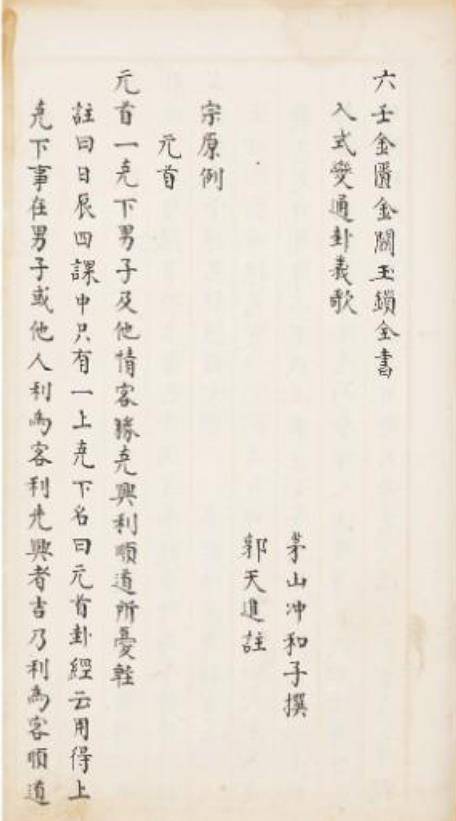 六壬金匱金關玉鎖全書
入式變通卦義歌
茅山冲和子撰
郭天進註
宗原例
元首
元首一尅下男子及他情客勝尅興利順道所憂輕
註曰日辰四課中只有一上尅下名曰元首卦經云用得上
尅下事在男子或他人利為客利先興者吉乃利為客順道